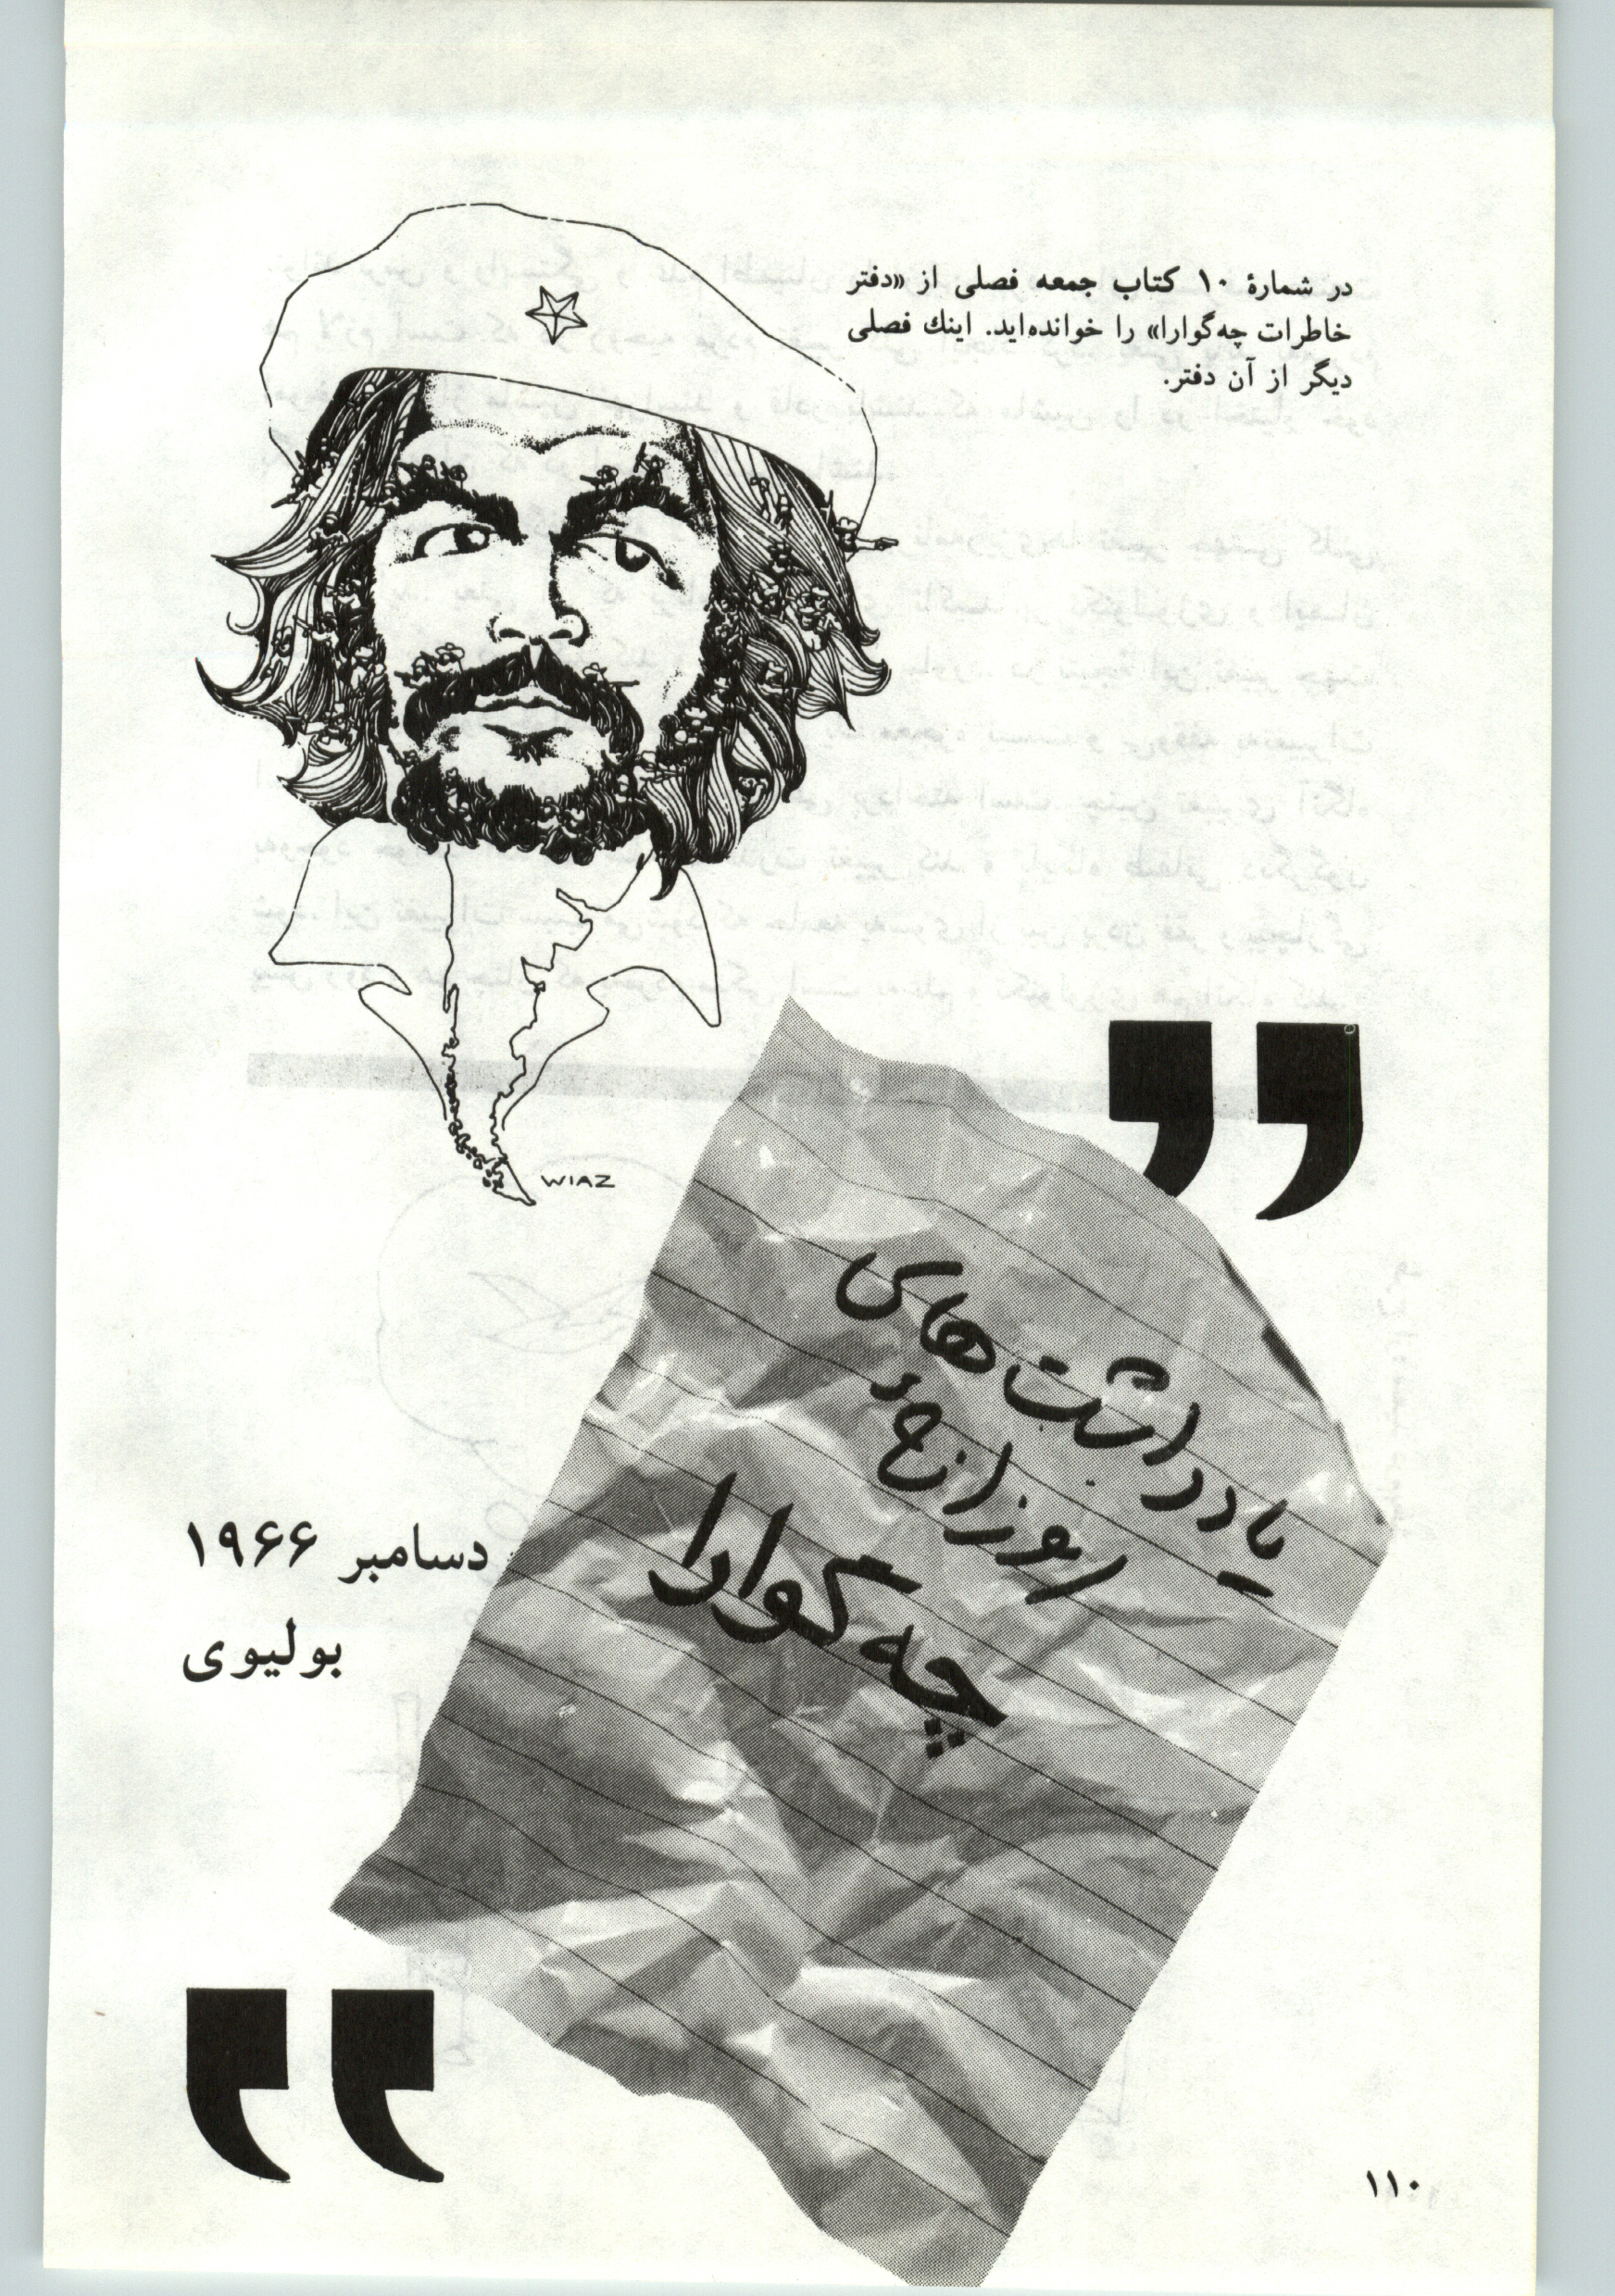 در شمارهٔ ۱۰ کتاب جمعه فصلی از «دفتر
خاطرات چه‌گوارا» را خوانده‌اید. اینك فصلی
دیگر از آن دفتر.
WIAZ
یادداشت‌های
روزانهٔ
چه‌گوارا
دسامبر ۱۹۶۶
بولیوی
۱۱۰